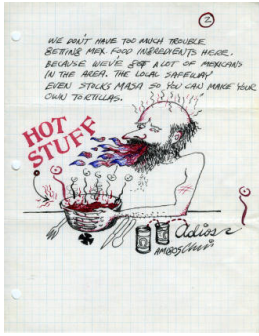 2
WE DON'T HAVE TOO MUCH TROUBLE
GETING MEX. FOOD INGREDIENTS HERE.
BECAUSE WE'VE GOT A LOT OF MEXICANS
IN THE AREA. THE LOCAL SAFEWAY
EVEN STOCKS MASA SO YOU CAN MAKE YOUR
OWN TORTILLAS.
HOT
STUFF
adios
AMIGOS